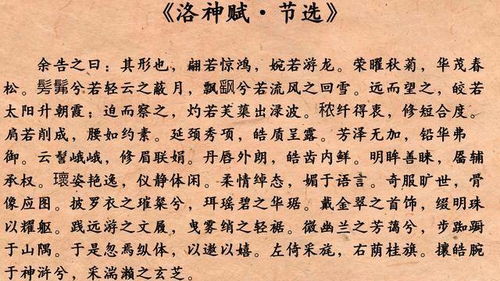 《洛神赋·节选》
余告之曰：其形也，翩若惊鸿，婉若游龙。荣曜秋菊，华茂春
松。髣髴兮若轻云之蔽月，飘飖兮若流风之回雪。远而望之，皎若
太阳升朝霞；迫而察之，灼若芙蕖出渌波。秾纤得衷，修短合度。
肩若削成，腰如约素。延颈秀项，皓质呈露。芳泽无加，铅华弗
御。云髻峨峨，修眉联娟。丹唇外朗，皓齿内鲜。明眸善睐，靥辅
承权。瓌姿艳逸，仪静体闲。柔情绰态，媚于语言。奇服旷世，骨
像应图。披罗衣之璀粲兮，珥瑶碧之华琚。戴金翠之首饰，缀明珠
以耀躯。践远游之文履，曳雾绡之轻裾。微幽兰之芳蔼兮，步踟蹰
于山隅。于是忽焉纵体，以遨以嬉。左倚采旄，右荫桂旗。攘皓腕
于神浒兮，采湍濑之玄芝。